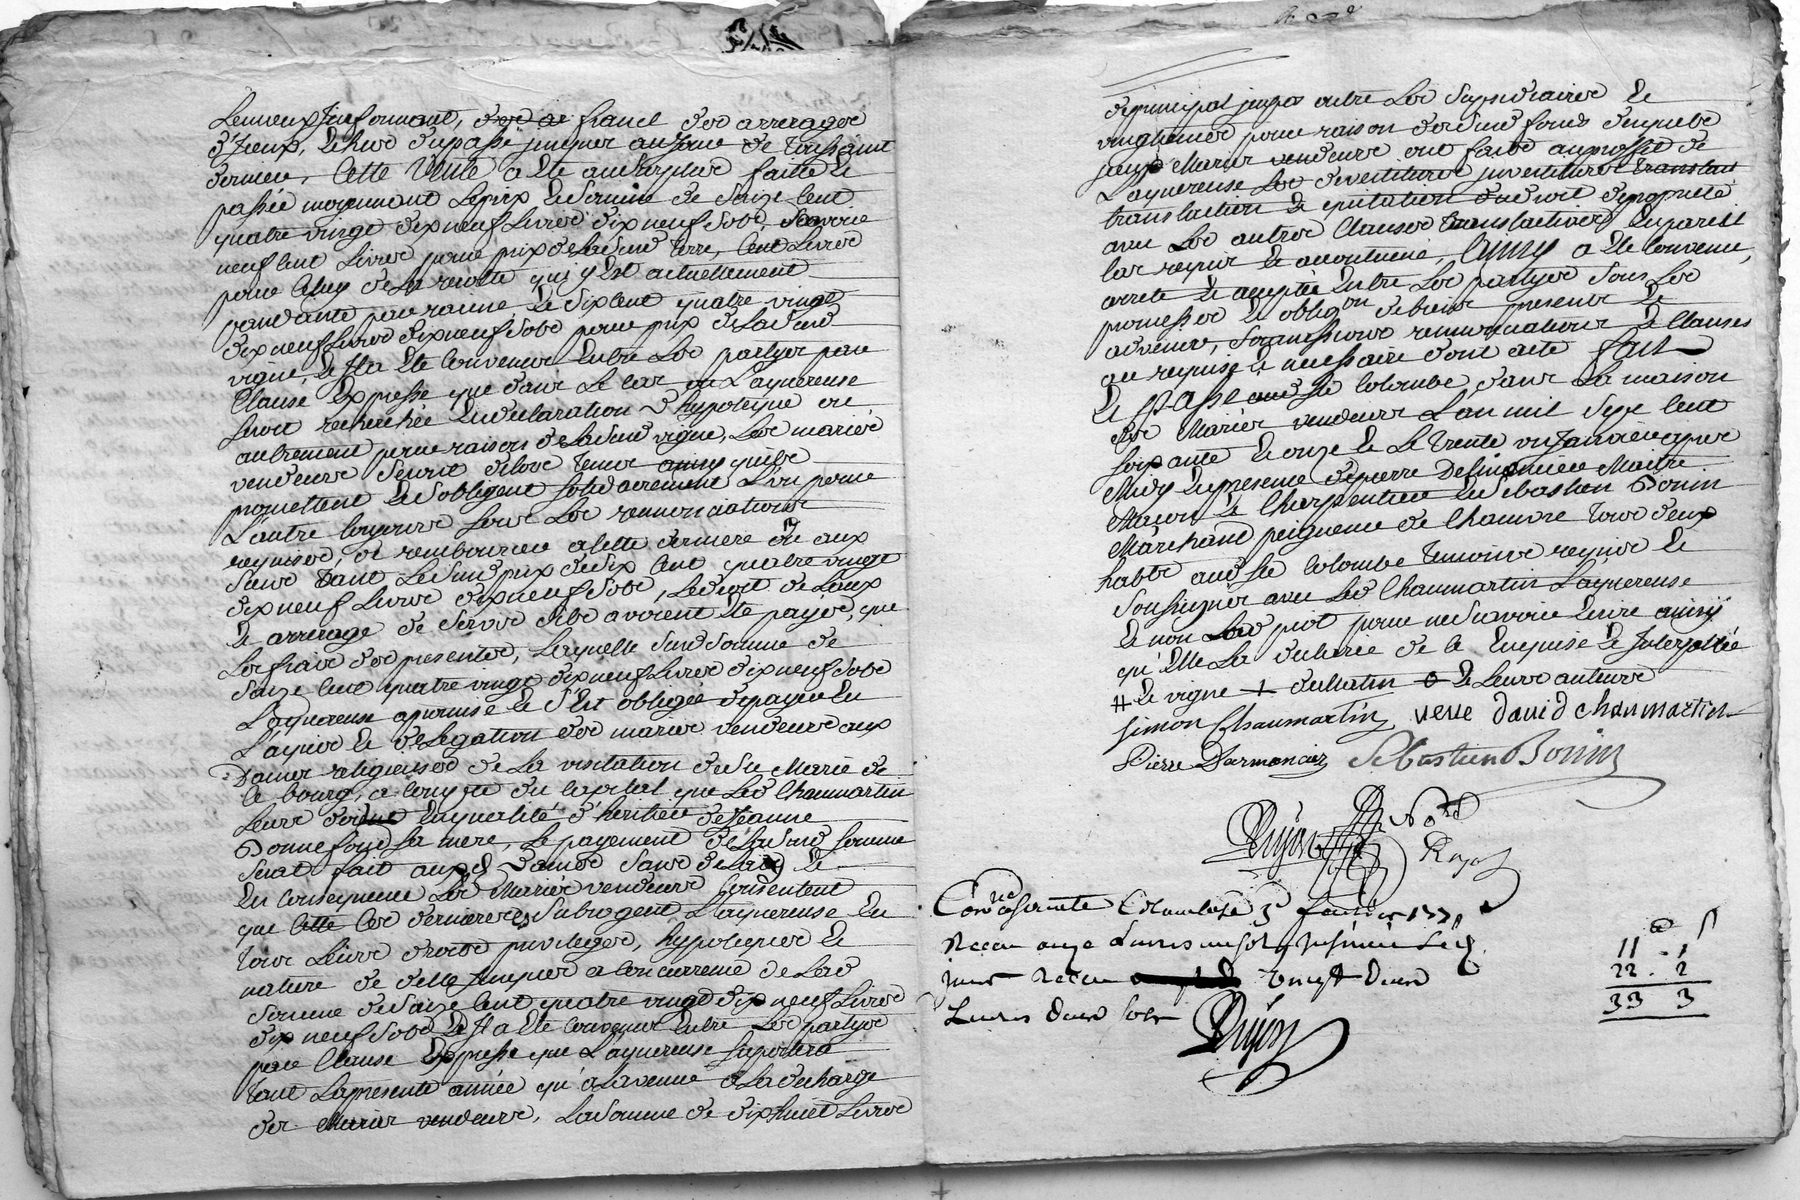 Lemieux Jnformant, franct des arrerages
d'Jceux, Et tiere du passé jusques au Jour de toussaint
dernier, Cette Vente a Ete au Surplus faitte Et
passée moyennant Le prix Et Somme de Seize Cent
quatre vingt dix neuf Livres dix neuf Sols, Scavoir
neuf Cent Livres pour prix de lad. terre, Cent Livres
pour Celuy de La recolte qui y Est actuellement
pendante par racine Et Six Cent quatre vingt
dix neuf Livres dix neuf Sols pour prix de Lad.
vigne, Et Jl a Ete Convenu Entre Les partyes par
Clause Expresse que dans Le Cas ou L'aquereuse
Seroit recherchée En declaration d'hypoteque ou
autrement pour raison de Lad. vigne, Les mariés
vendeurs Seront
promettent Et S'obligent Solidairement L'un pour
L'autre Comme Sous Les renonciations
requises, de rembourcer a Cette derniere ou aux
Siens tant Led. prix de Six Cent quatre vingt
dix neuf Livres dix neuf Sols, Le droit de Laux
Et arrerage de Servis s'ils avoient Ete payés, que
Les frais des presentes, Laquelle Susd. Somme de
Seize Cent quatre vingt dix neuf Livres dix neuf Sols
L'aquereuse a promise Et S'est obligée de payer En
L'aquit Et delegation des mariés vendeurs aux
Dames religieuses de La visitation de Ste Marie de
Ce bourg, a Compte du Capital que Led. Chaumartin
Leurs doit En qualité d'héritier de Jeanne
Bonnefond Sa mere, Le payement de lad. Somme
Serat fait auxd. Dames Sans delay Et
En Consequence Les Mariés vendeurs Consentent
que Ces dernieres Subrogent L'aquereuse En
tous Leurs droits privileges, hypoteques Et
nature de dette jusques a Concurrence de Lad.
Somme de Seize Cent quatre vingt dix neuf Livres
dix neuf Sols Et Jl a Ete Convenu Entre Les partyes
par Clause Expresse que L'aquereuse Suportera
tant La presente année qu'a L'avenir a La decharge
des Mariés vendeurs, La Somme de dix huit Livres
de principal jmpos outre Les Supsidiaires Et
vingtiemes pour raison desd. fonds desquels
jceux Mariés vendeurs ont fait au proffit de
L'aquereuse Les devestitures jnvestitures
translaction Et quitation du droit de proprieté
avec Les autres Clauses translatives En pareil
Cas requis Et accoutumé, Ainsy a Ete Convenu,
arreté Et accepté Entre Les partyes Sous Les
promesses Et oblig.on de biens presents Et
advenir, Soumissions renonciations Et Clauses
au requises Et necessaire dont acte fait
Et passé aud. Ste Colombe, dans La maison
des Mariés vendeurs L'an mil Sept Cent
Soixante Et onze Et Le trente un Janvier apres
Midy En presence de pierre Desarmanier Maitre
Maçon Et Charpentier Et Sebastien Bonin
Marchand peigneur de Chanvre tous deux
habts aud. Ste Colombe temoins requis Et
Soussignés avec Led. Chaumartin L'aquereuse
Et non Lad. piot pour ne Scavoir Ecrire ainsy
qu'Elle La declarée de Ce Enquise Et Interpellée
# Et vigne + du Matin o Et Leurs auteurs
Simon Chaumartin veve david chaumartin
Pierre Darmancier Sebastien Bonin
Dujon No.re
Royal
Con.lé a Sainte Colombe 5 fevrier 1771
Recu onze Livres un sol
plus Recu vingt deux
Livres deux sols
Dujon
11 . 1
22 . 2
33 3